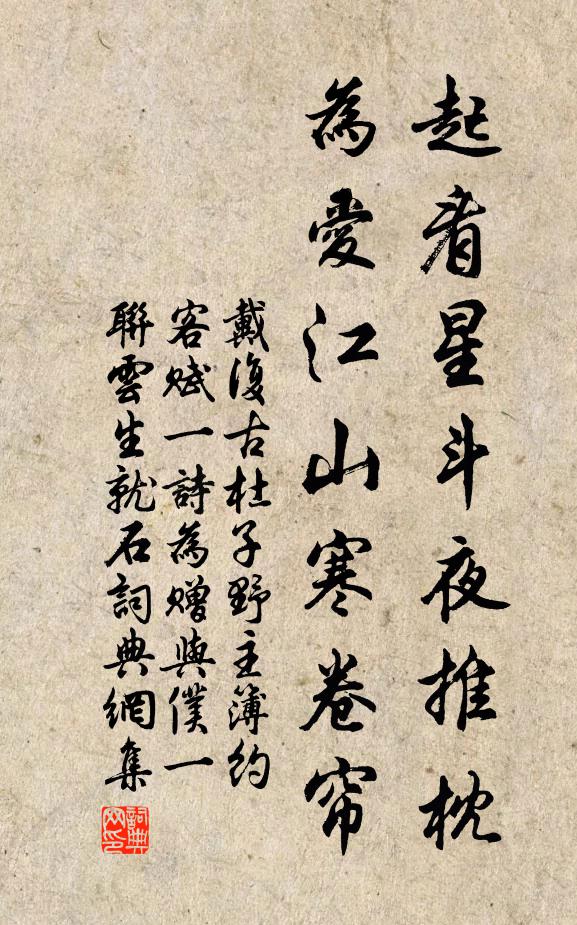 起看星斗夜推枕
為愛江山寒卷帘
戴復古杜子野主簿約
客賦一詩為贈與僕一
聯雲生就石詞典網集
詞典
网印